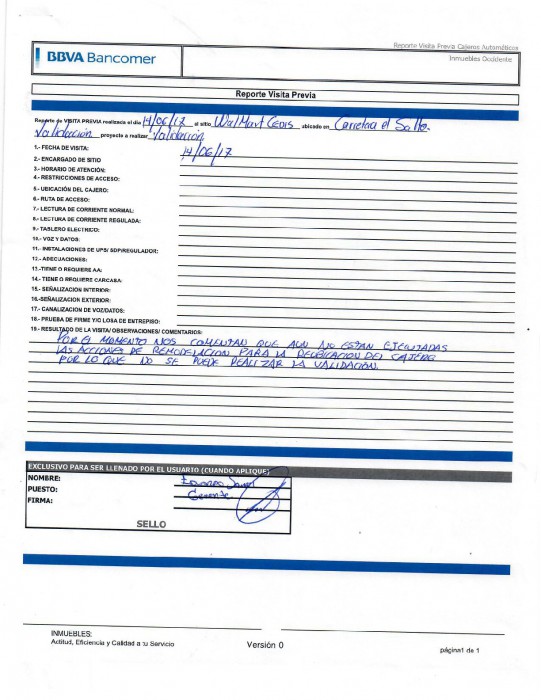 Reporte Visita Previa Cajeros Automáticos
BBVA Bancomer
Inmuebles Occidente
Reporte Visita Previa
Reporte de VISITA PREVIA realizada el día 14/06/17 al sitio WalMart Cedis ubicado en Carretera el Salto.
Validación proyecto a realizar Validación
1.- FECHA DE VISITA: 14/06/17
2.- ENCARGADO DE SITIO
3.- HORARIO DE ATENCIÓN:
4.- RESTRICCIONES DE ACCESO:
5.- UBICACIÓN DEL CAJERO:
6.- RUTA DE ACCESO:
7.- LECTURA DE CORRIENTE NORMAL:
8.- LECTURA DE CORRIENTE REGULADA:
9.- TABLERO ELECTRICO:
10.- VOZ Y DATOS:
11.- INSTALACIONES DE UPS/ SDP/REGULADOR:
12.- ADECUACIONES:
13.-TIENE O REQUIERE AA:
14.- TIENE O REQUIERE CARCASA:
15.- SEÑALIZACION INTERIOR:
16.-SEÑALIZACION EXTERIOR:
17.- CANALIZACION DE VOZ/DATOS:
18.- PRUEBA DE FIRME Y/O LOSA DE ENTREPISO:
19.- RESULTADO DE LA VISITA/ OBSERVACIONES/ COMENTARIOS:
POR EL MOMENTO NOS COMENTAN QUE AUN NO ESTAN EJECUTADAS
LAS ACCIONES DE REMODELACION PARA LA REUBICACION DEL CAJERO
POR LO QUE NO SE PUEDE REALIZAR LA VALIDACION.
EXCLUSIVO PARA SER LLENADO POR EL USUARIO (CUANDO APLIQUE)
NOMBRE:
PUESTO: Gerente
FIRMA:
SELLO
INMUEBLES:
Actitud, Eficiencia y Calidad a tu Servicio
Versión 0
página1 de 1